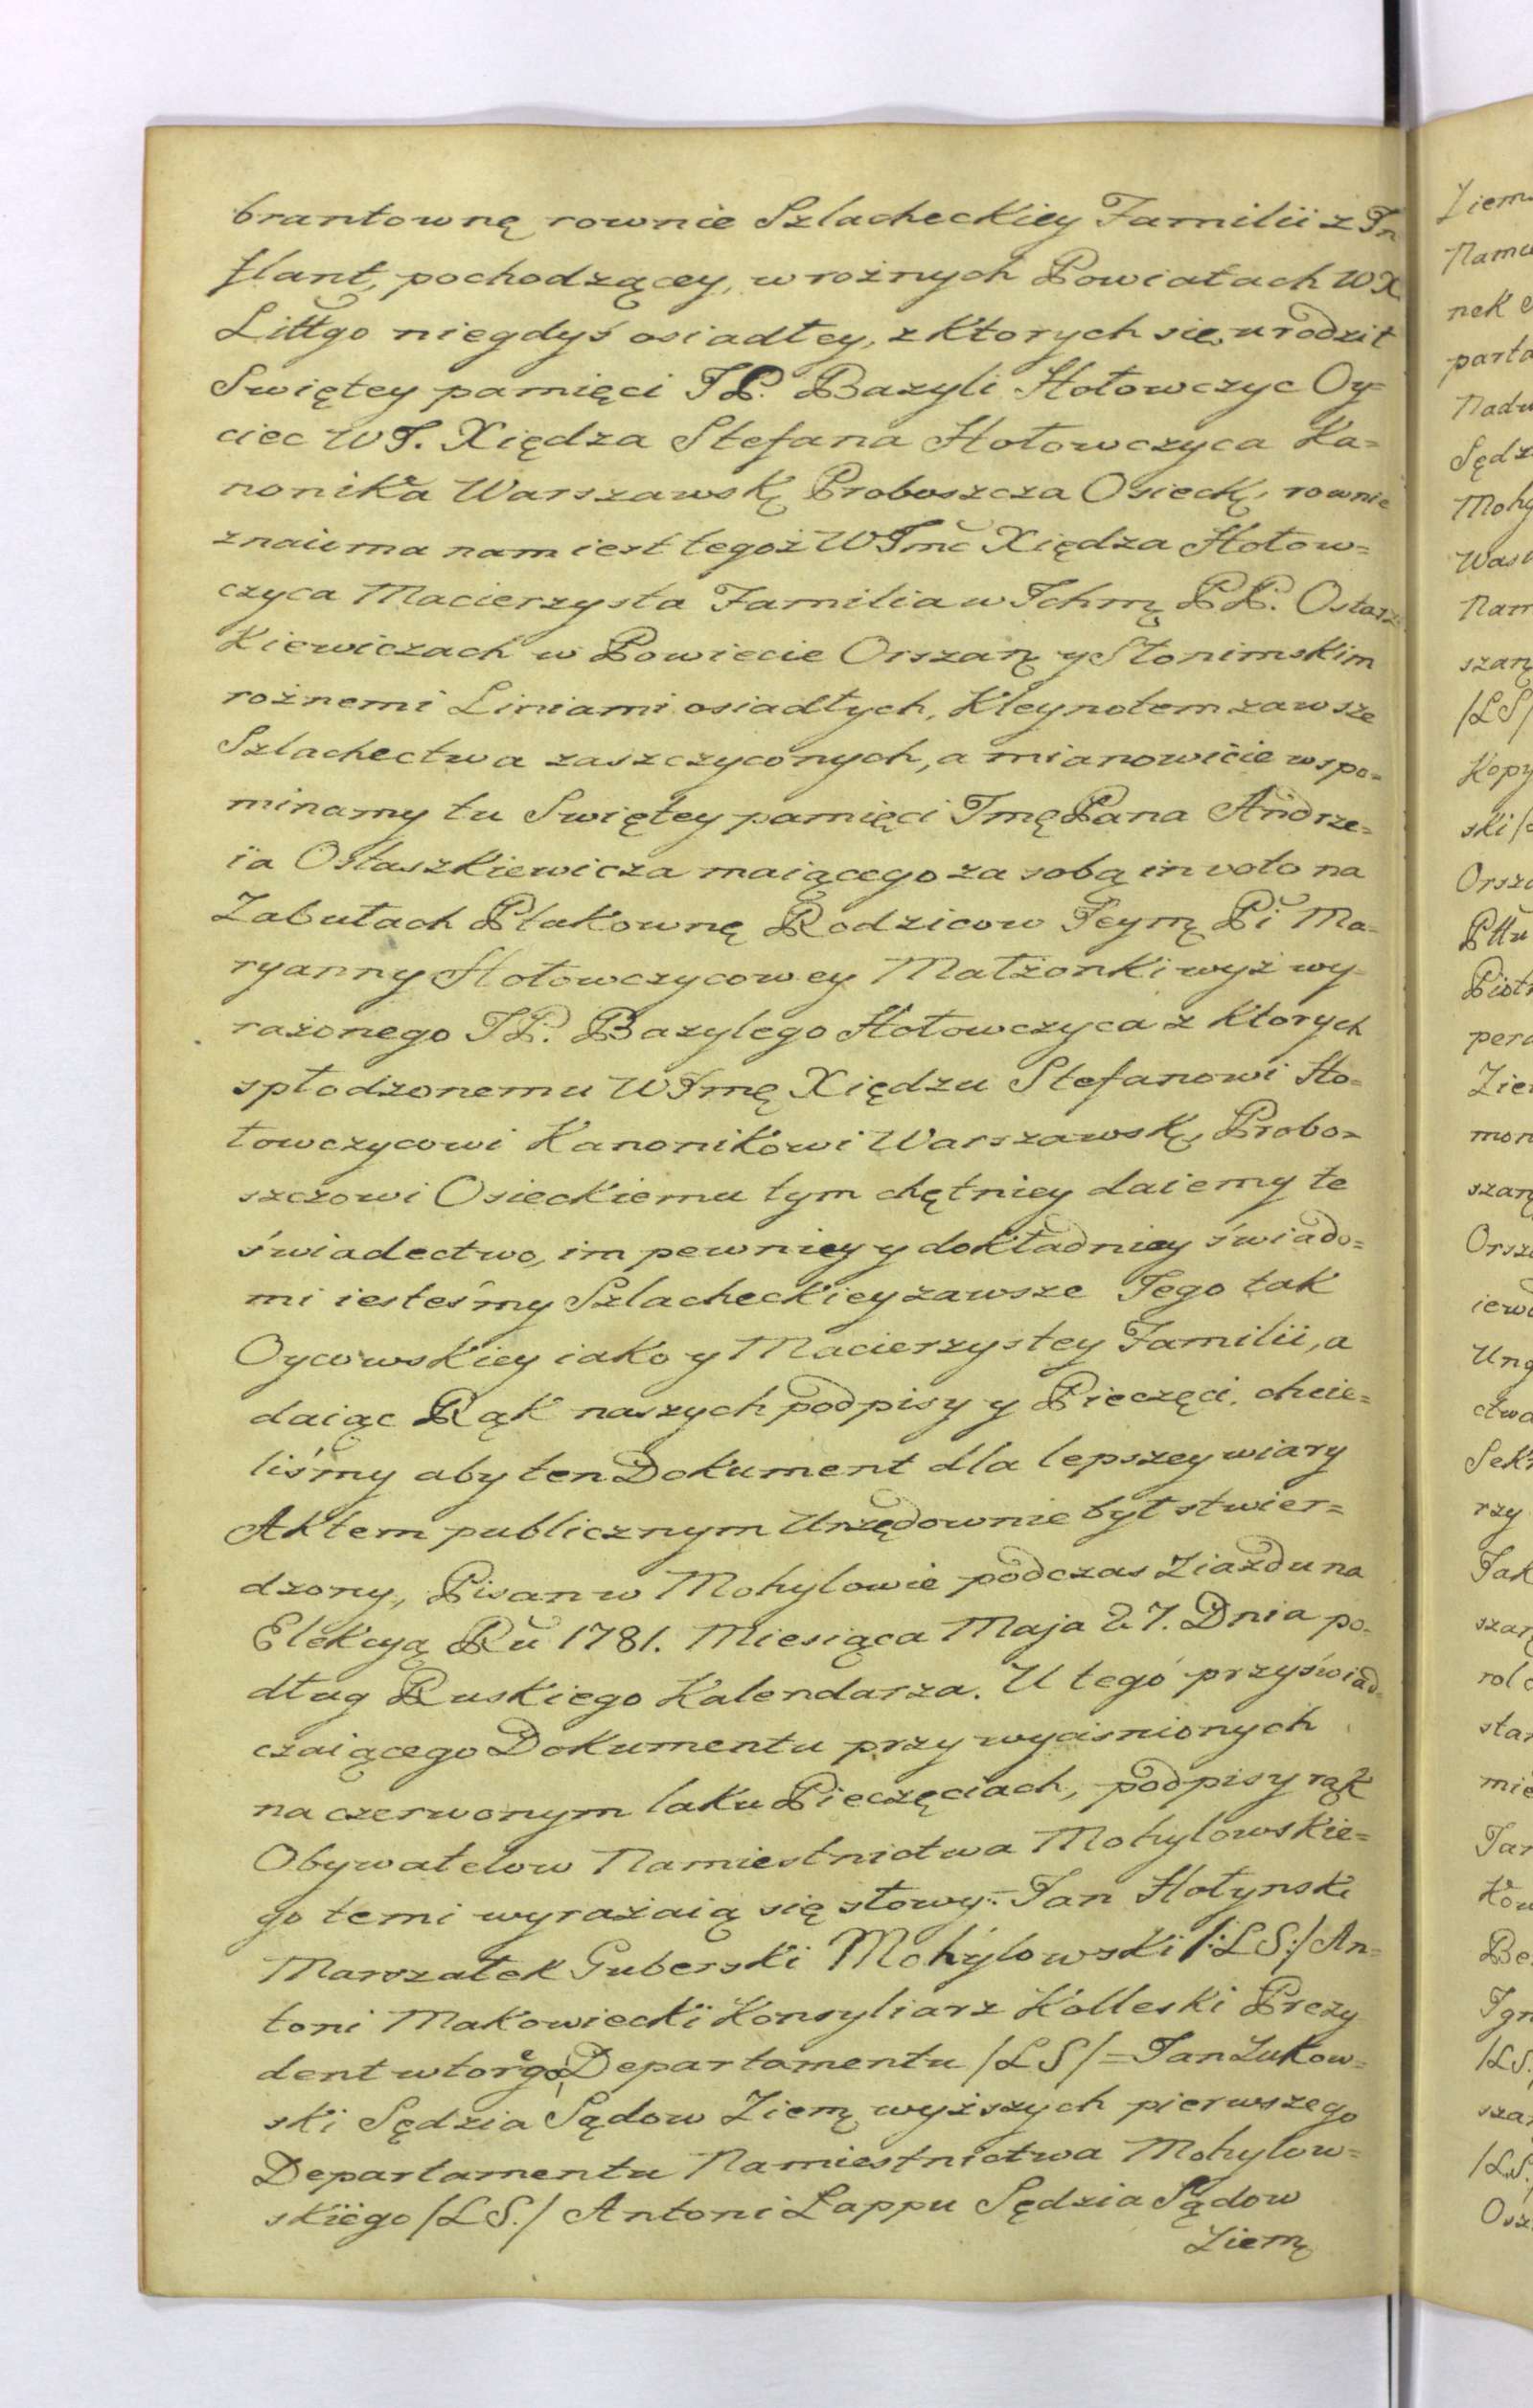 brantowną rownie Szlacheckiey Familii z In
flant, pochodzącey, w rożnych Powiatach W X
Littgo niegdyś osiadłey, z ktorych się urodził
Swiętey pamięci JP. Bazyli Hołowczyc Oy=
ciec WJ. Xiędza Stefana Hołowczyca Ka=
nonika Warszawsk Proboszcza Osieck, rownie
znaioma nam iest tegoż WJmc Xiędza Hołow=
czyca Macierzysta Familia w Ichm PP. Ostasz
kiewiczach w Powiecie Orszań y Słonimskim
rożnemi Liniami osiadłych, Kleynotem zawsze
Szlachectwa zaszczyconych, a mianowicie wspo=
minamy tu Swiętey pamięci Jmę Pana Andrze=
ia Ostaszkiewicza maiącego za sobą in voto na
Zabułach Ptakownę Rodzicow Jeym Pi Ma=
ryanny Hołowczycowey Małżonki wyż wy=
rażonego JP. Bazylego Hołowczyca z ktorych
spłodzonemu WJmę Xiędzu Stefanowi Ho=
łowczycowi Kanonikowi Warszawsk, Probo=
szczowi Osieckiemu tym chętniey daiemy te
świadectwo, im pewniey y dokładniey świado=
mi iesteśmy Szlacheckiey zawsze Jego tak
Oycowskiey iako y Macierzystey Familii, a
daiąc Rąk naszych podpisy y Pieczęci. chcie=
liśmy aby ten Dokument dla lepszey wiary
Aktem publicznym Urzędownie był stwier=
dzony, Pisan w Mohylowie podczas Ziazdu na
Elekcyą Ru 1781. Miesiąca Maja 27. Dnia po=
dług Ruskiego Kalendarza. U tego przyświad=
czaiącego Dokumentu przy wyciśnionych
na czerwonym laku Pieczęciach, podpisy rąk
Obywatelow Namiestnictwa Mohylowskie=
go temi wyrażaią się słowy:= Jan Hołynski
Marszałek Guberski Mohylowski /:LS:/ An=
toni Makowiecki Konsyliarz Kolleski Prezy
dent wtorego Departamentu /LS/ = Jan Żukow=
ski Sędzia Sądow Ziem wyższych pierwszego
Departamentu Namiestnictwa Mohylow=
skiego /LS./ Antoni Łappu Sędzia Sądow
Ziem